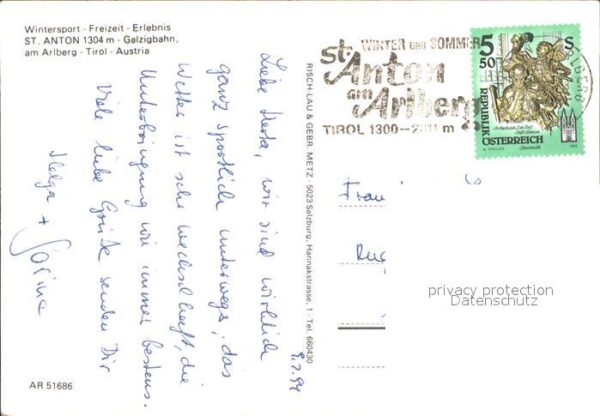 Wintersport - Freizeit - Erlebnis
ST. ANTON 1304 m - Galzigbahn,
am Arlberg - Tirol - Austria
Liebe Herta, wir sind wirklich
ganz sportlich unterwegs, das
Wetter ist sehr wechselhaft, die
Unterbringung wie immer bestens.
Viele liebe Grüße senden Dir
Helga +
9.7.94
AR 51686
RISCH-LAU & GEBR. METZ - 5023 Salzburg, Hannakstrasse, 1 - Tel. 660430
WINTER UND SOMMER
St. Anton
am Arlberg
TIROL 1300-2811 m
5 S
50
REPUBLIK
ÖSTERREICH
Frau
privacy protection
Datenschutz